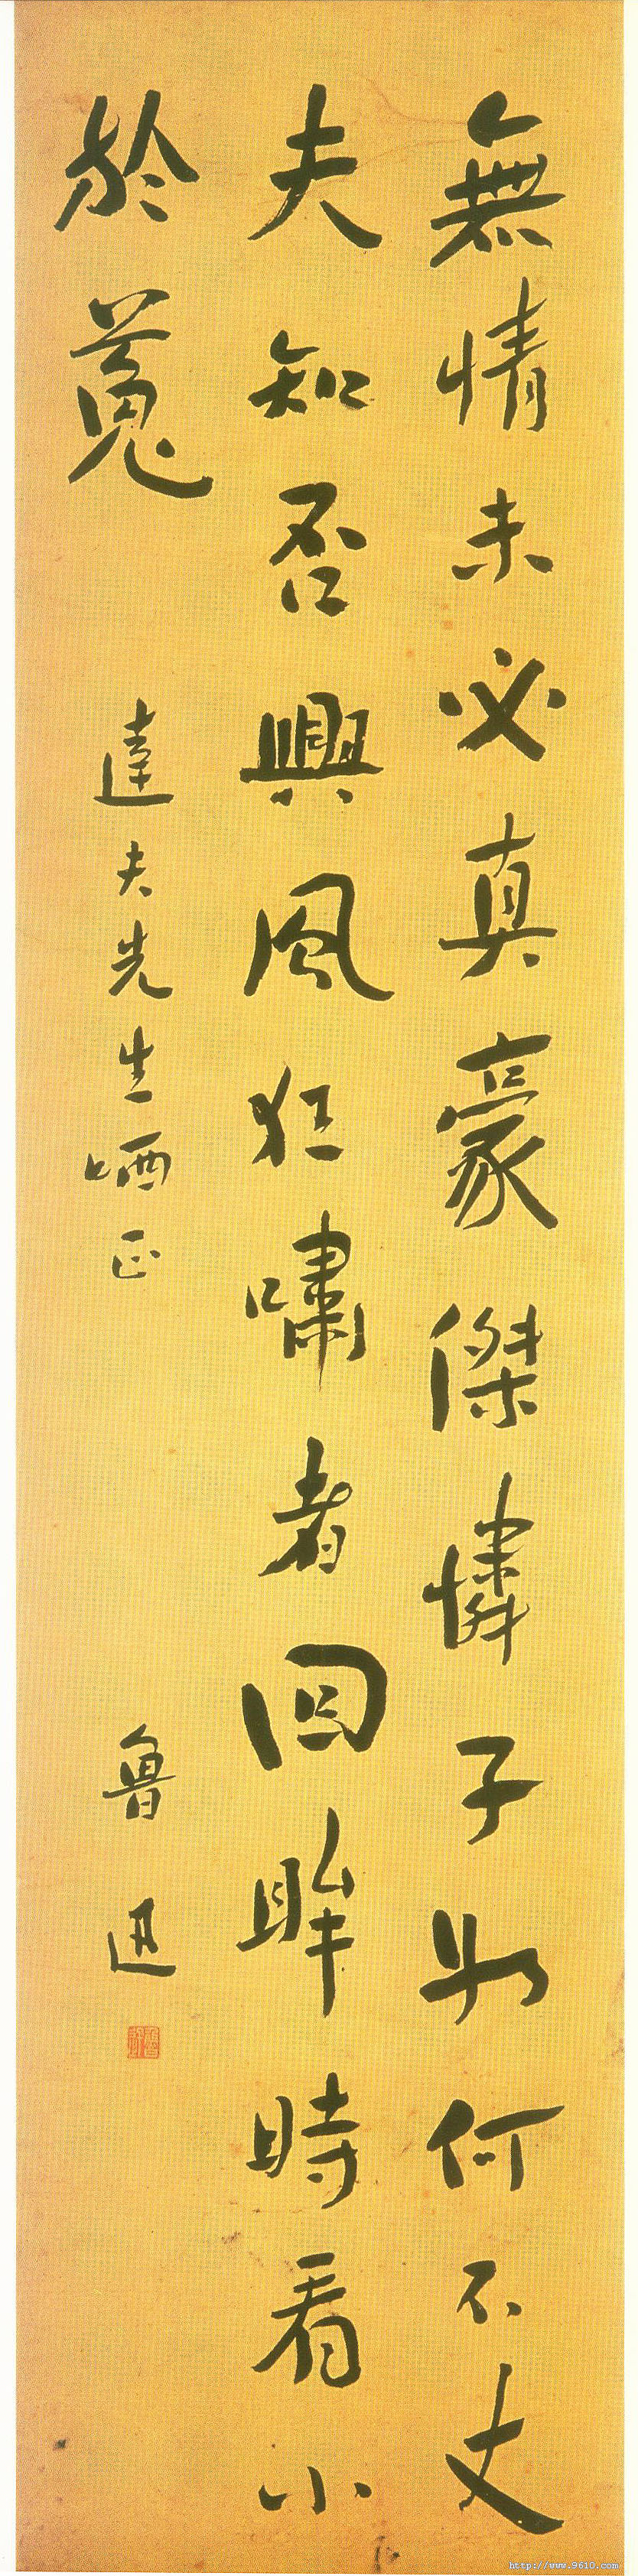 無情未必真豪傑憐子如何不丈
夫知否興風狂嘯者回眸時看小
於菟
達夫先生哂正
魯迅
魯迅
http://www.9610.com